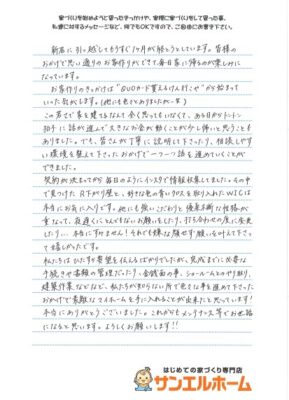 家づくりを始めようと思ったきっかけや、実際に家づくりをして思った事、
私達に対するメッセージなど、何でもOKですので、ご自由にお書き下さい。
新居に引っ越してもうすぐ1ヶ月が経とうとしています。皆様の
おかげで思い通りのお家作りができて毎日家に帰るのが楽しみに
なっています。
お家作りのきっかけは"QUOカード貰えるけん行こや"から始まって
いった気がします。(他にも色々とありましたが…笑)
この若さで家を建てるなんて全く思ってもいなくて、あれよあれよとトントン
拍子に話が進んで大きなお金が動くことが少し怖いと思うことも
ありました。でも、皆さんが丁寧に説明して下さったり、相談しやす
い環境を整えて下さったおかげで一つ一つ話を進めていくことが
できました。
契約が決まってから毎日のようにインスタで情報収集してました。その中
で見つけた、R下がり壁と、好きな色の青いクロスを取り入れたWICは
本当にお気に入りです。他にも強いこだわりと優柔不断な性格が
重なって、夜遅くにとんでもないお願いをしたり、打ち合わせの度に変更
したり…本当にすみません!それでも嫌な顔せず願いを叶えて下さっ
て嬉しかったです。
私たちはひたすら要望を伝えるばかりでしたが、完成までに必要な
手続きや書類の管理だったり、金銭面の事、ショールームとのやり取り、
建築作業などなど、私たちが知らない所で色々な事を進めて下さった
おかげで素敵なマイホームを手に入れることが出来たと思っています!
本当にありがとうございました。これからもメンテナンス等でお世話
になると思います。よろしくお願いします!!
はじめての家づくり専門店
サンエルホーム